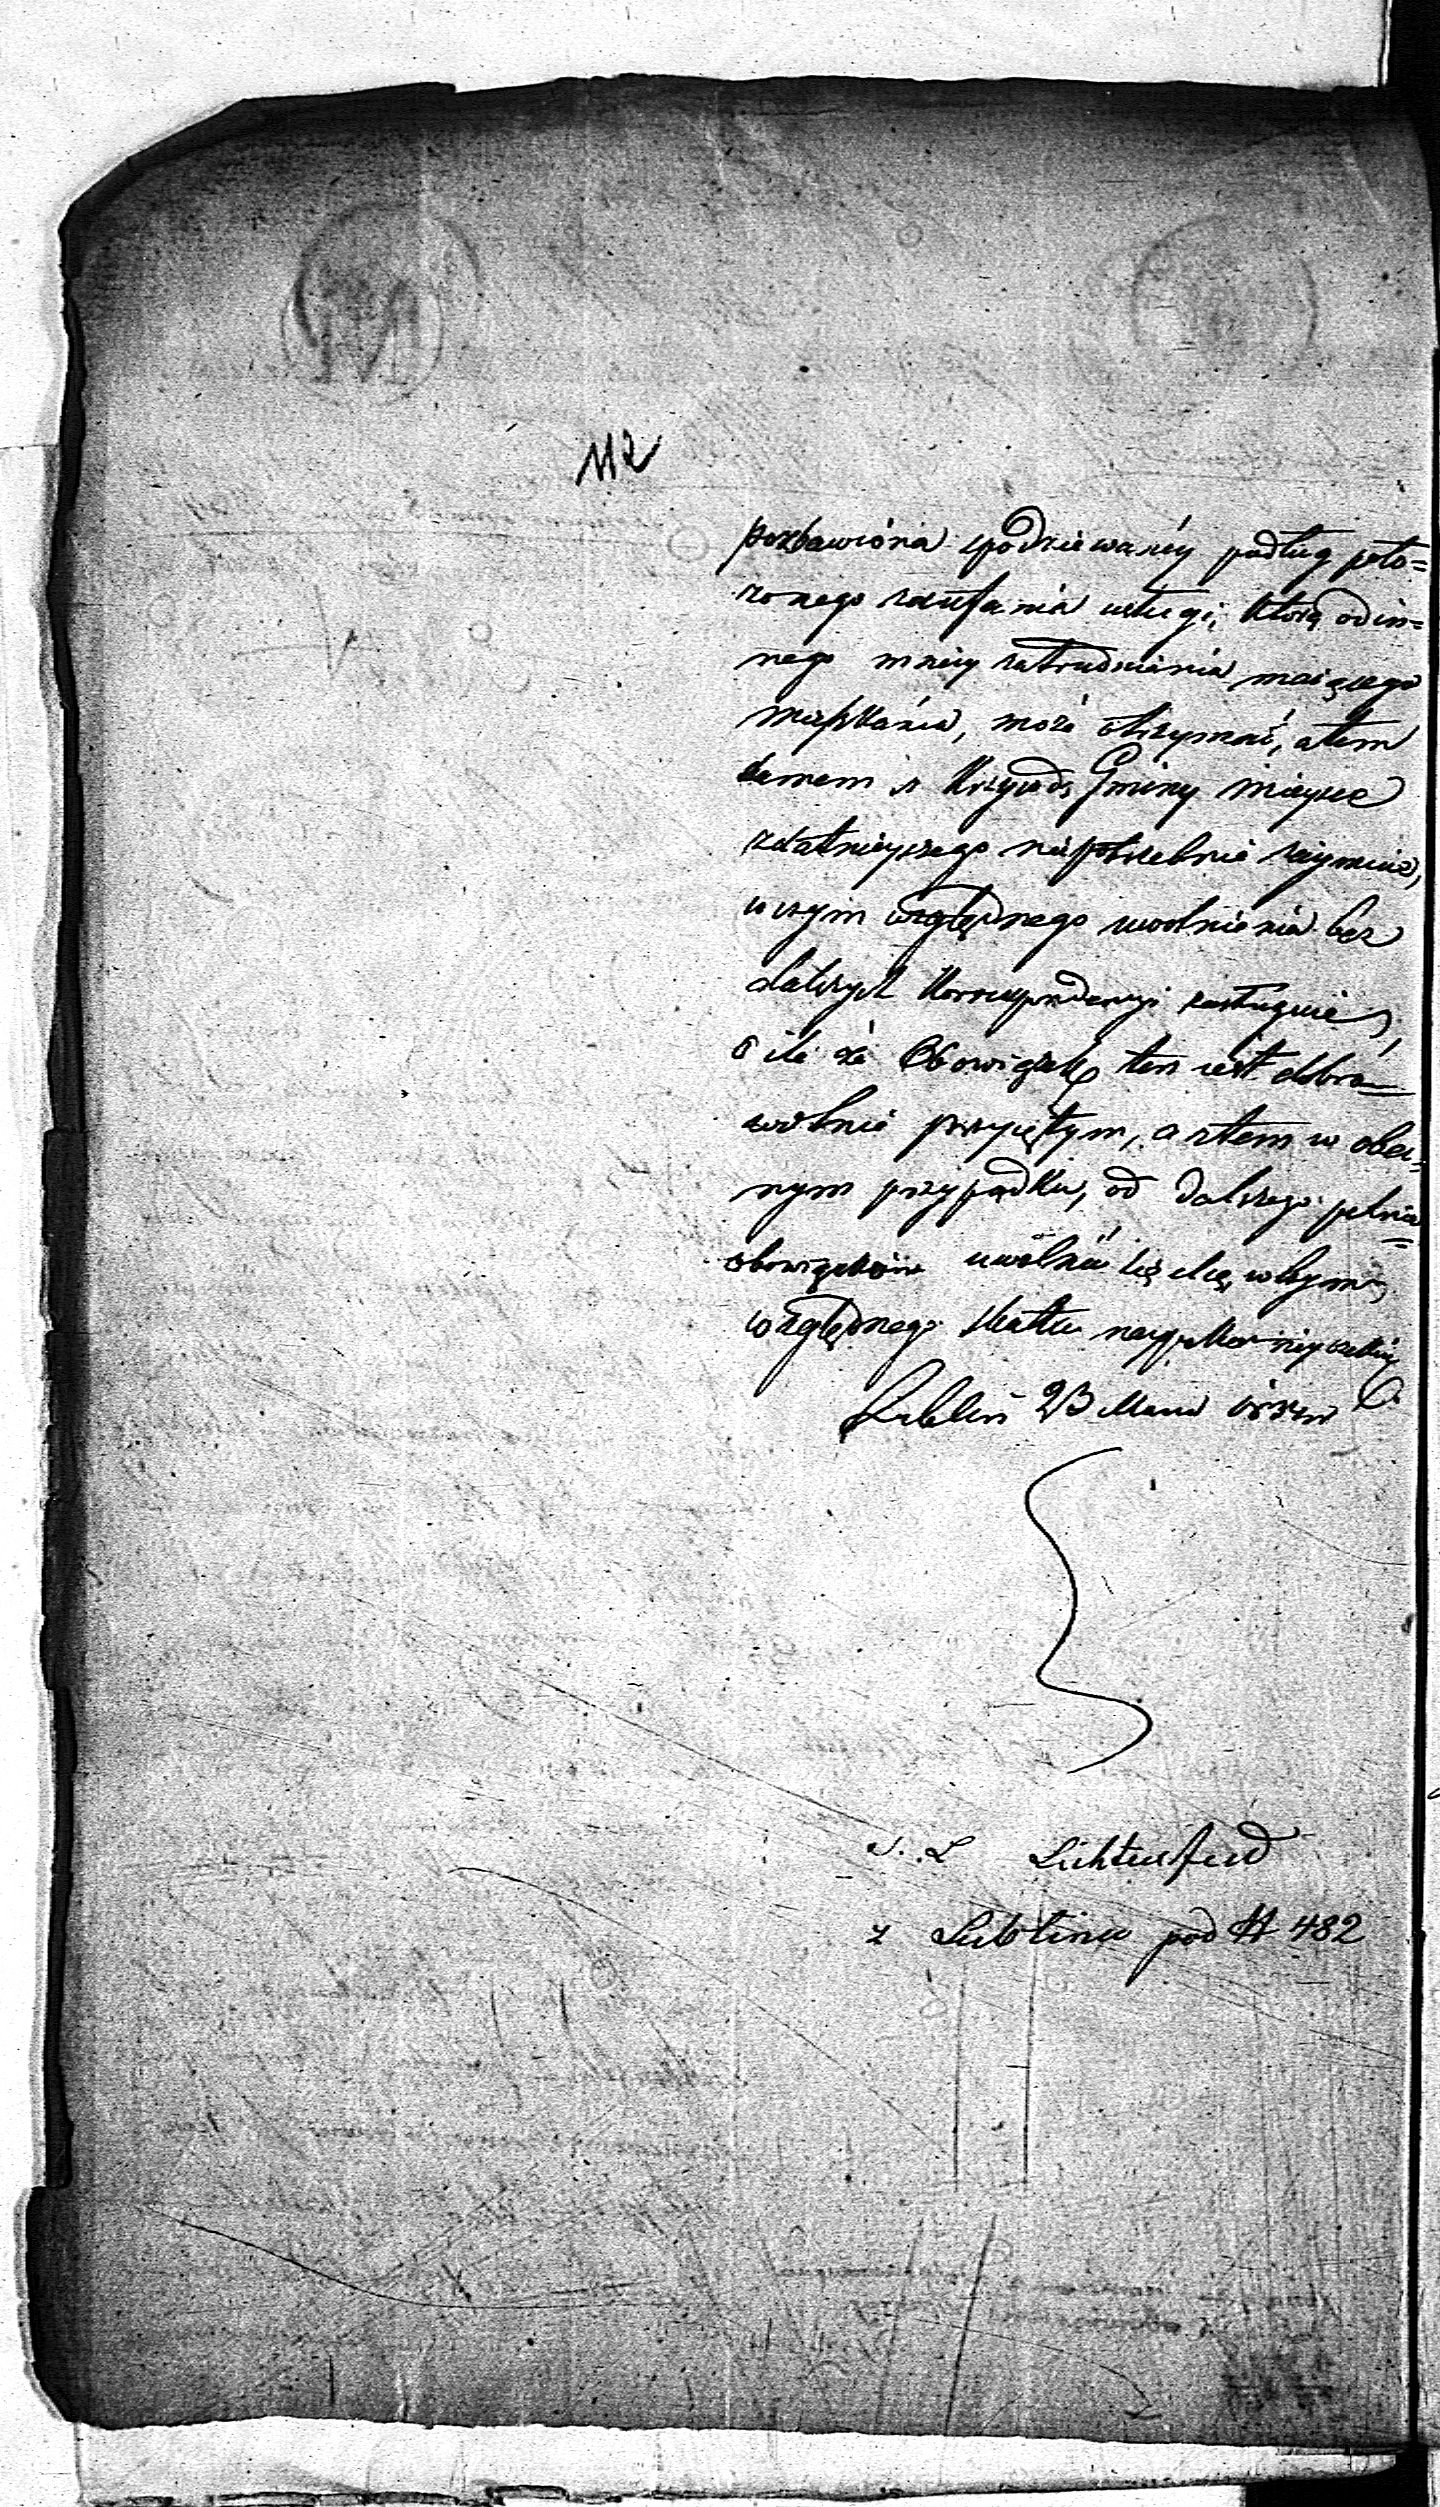 112
pozbawióna spodziewanéy podług poło=
zonego zaufania usługi, którą od in=
nego mniéy zatrudnienia maiącego
mieszkańca, może otrzymać, a tem
samem z Krzywdą Gminy mieysce
zdatnieyszego niepotrzebnie zaymuie,
w czym względnego uwolnienia bez
dalszych Korrespondencyi zasługuie,
o ile że Obowiązek ten iest dobro=
wolnie przyiętym, a zatem w obec=
nym przypadku, od dalszego pełnia=
obowiązków uwolnić się chcę, w tym
względnego skutku naypokorniey
Lublin 23 Maia
S. L Lichtenfeld
z Lublina pod N 482